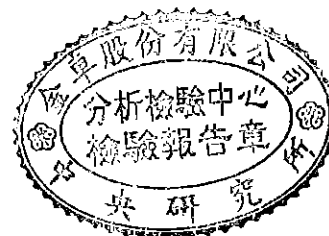 金車股份有限公司
分析檢驗中心
檢驗報告章
中央研究所